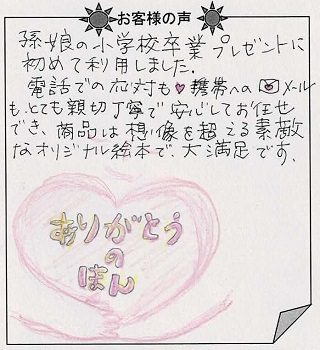 お客様の声
孫娘の小学校卒業プレゼントに
初めて利用しました.
電話での応対も♥携帯への✉メール
も、とても親切丁寧で安心してお任せ
でき、商品は想像を超える素敵
なオリジナル絵本で、大満足です、
ありがとう
の
ほん